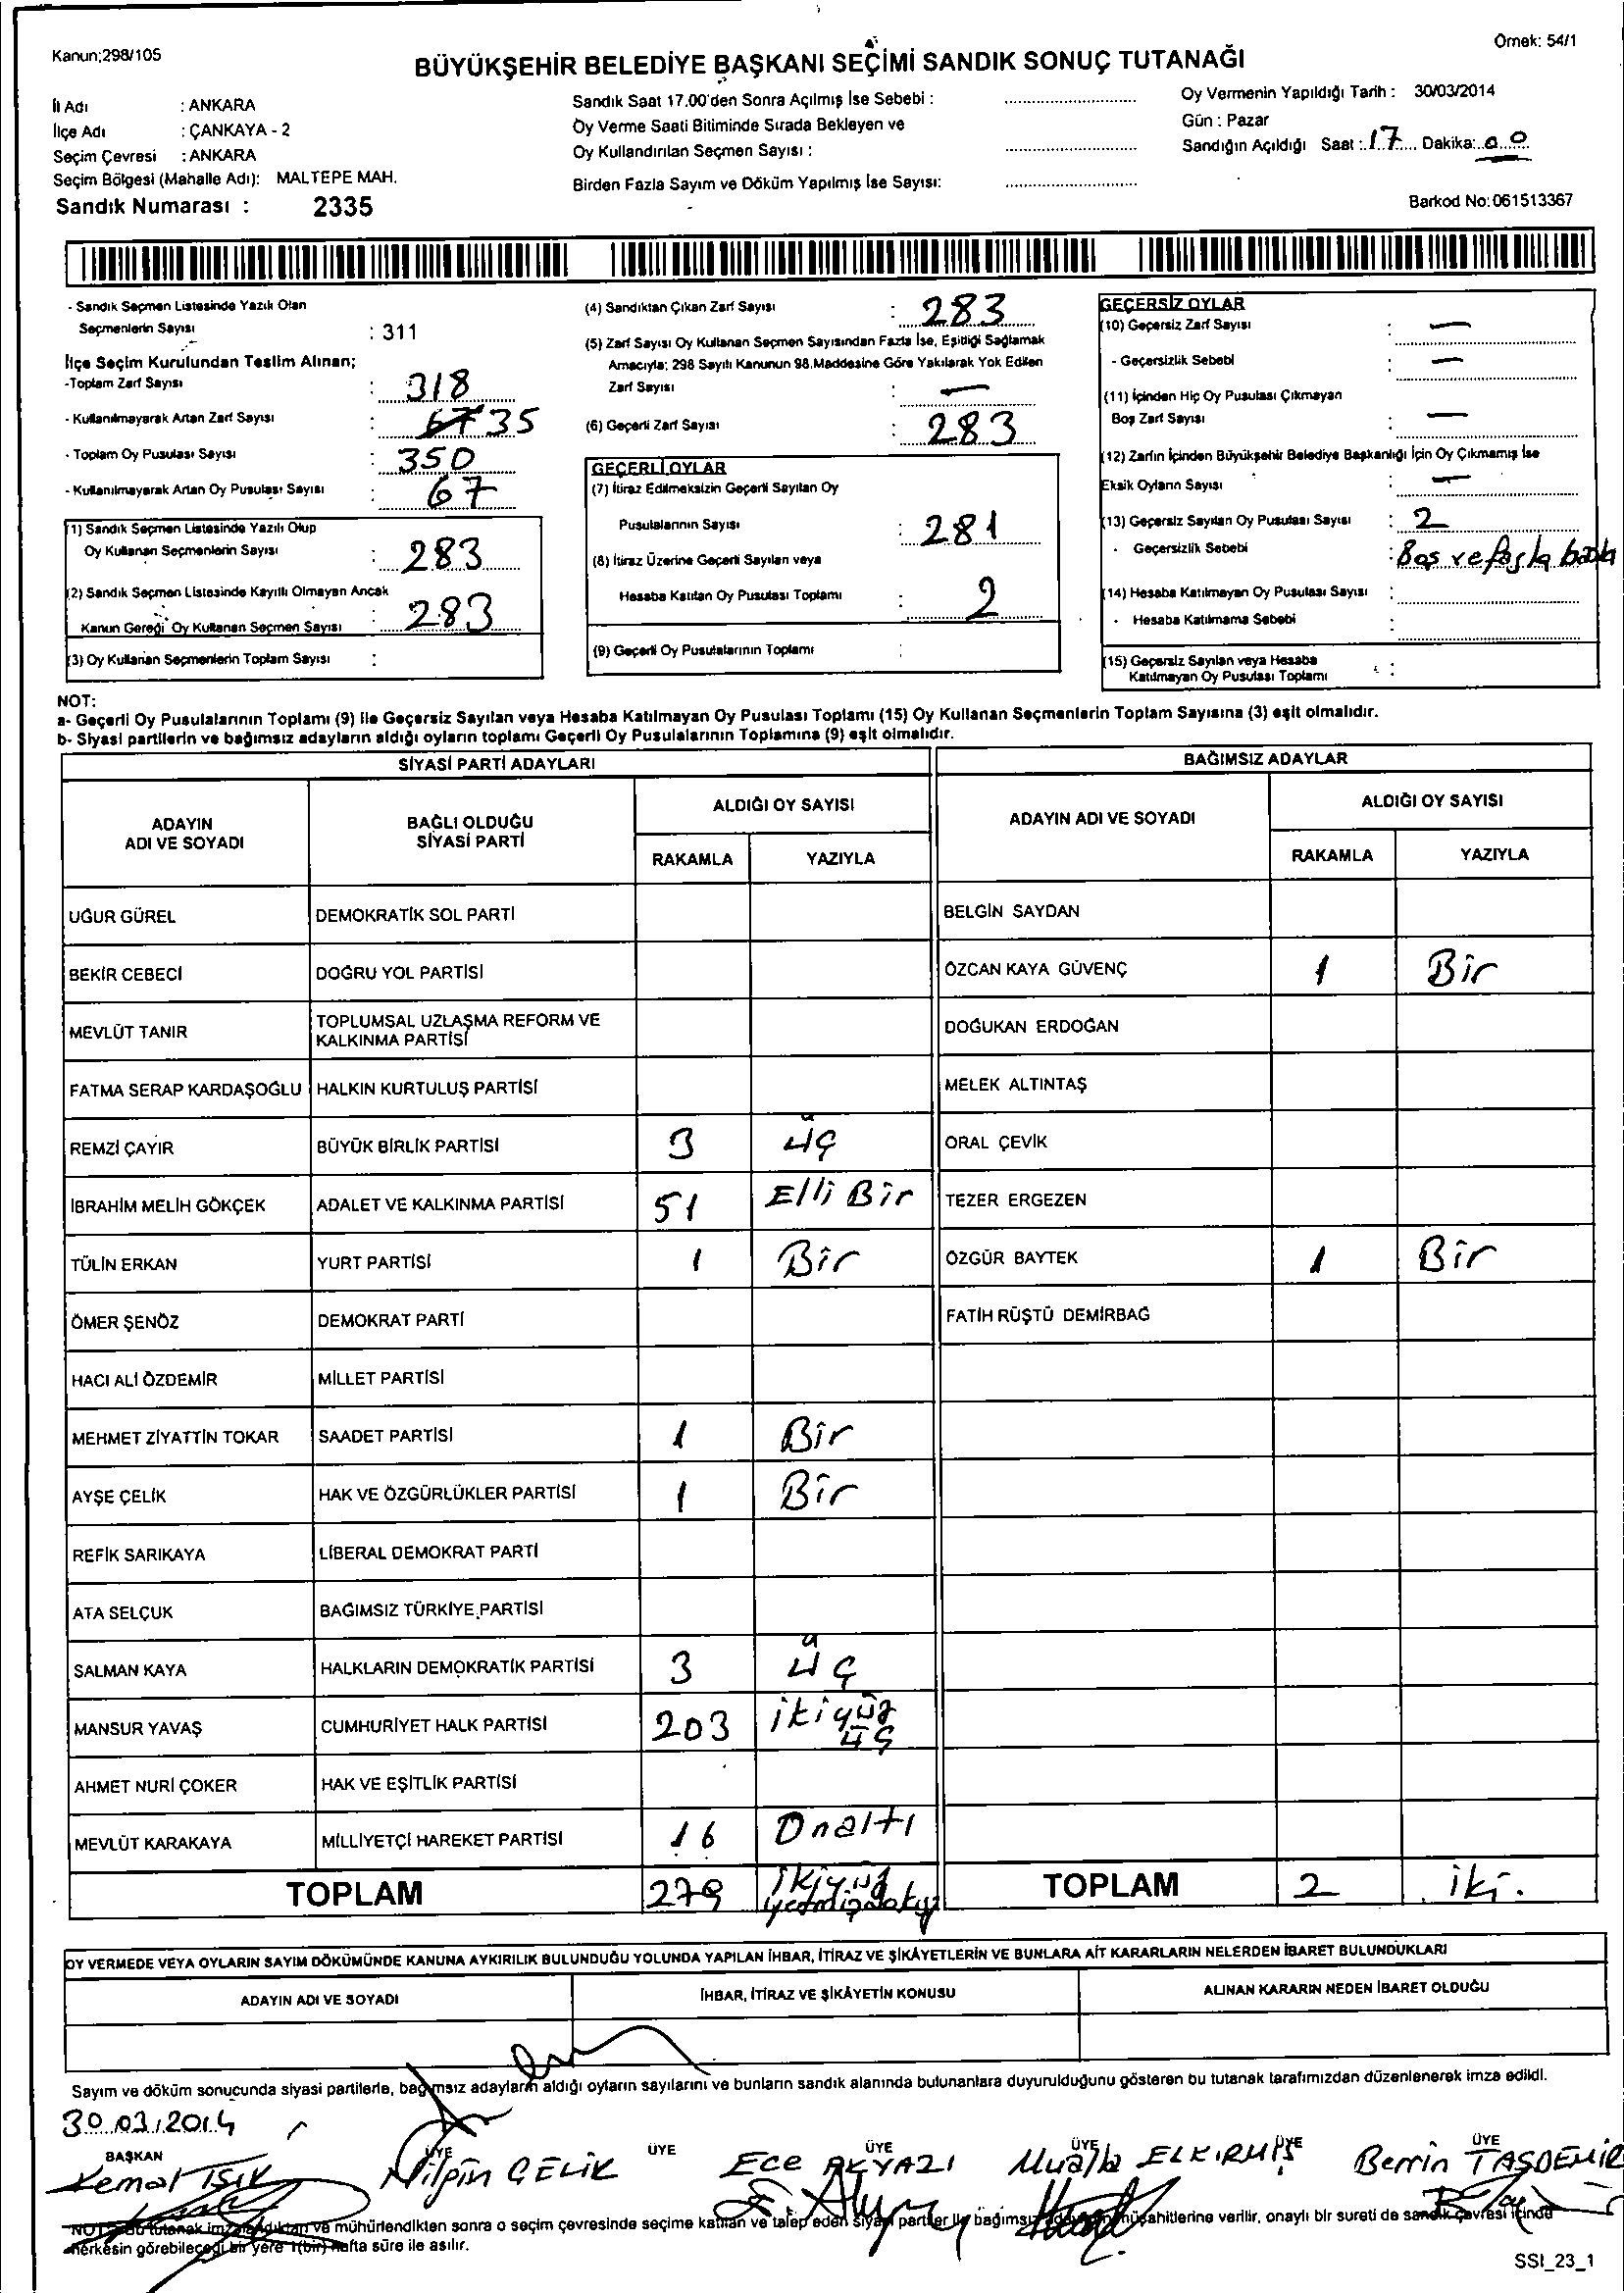 Kanun;298/105
Örnek: 54/1
BÜYÜKŞEHİR BELEDİYE BAŞKANI SEÇİMİ SANDIK SONUÇ TUTANAĞI
İl Adı : ANKARA
İlçe Adı : ÇANKAYA - 2
Seçim Çevresi : ANKARA
Seçim Bölgesi (Mahalle Adı): MALTEPE MAH.
Sandık Numarası : 2335
Sandık Saat 17.00'den Sonra Açılmış İse Sebebi :
Oy Verme Saati Bitiminde Sırada Bekleyen ve
Oy Kullandırılan Seçmen Sayısı :
Birden Fazla Sayım ve Döküm Yapılmış İse Sayısı:
Oy Vermenin Yapıldığı Tarih : 30/03/2014
Gün : Pazar
Sandığın Açıldığı Saat : 17 Dakika: 00
Barkod No: 061513367
- Sandık Seçmen Listesinde Yazılı Olan
Seçmenlerin Sayısı : 311
İlçe Seçim Kurulundan Teslim Alınan;
-Toplam Zarf Sayısı : 318
- Kullanılmayarak Artan Zarf Sayısı : 67 35
- Toplam Oy Pusulası Sayısı : 350
- Kullanılmayarak Artan Oy Pusulası Sayısı : 67
(1) Sandık Seçmen Listesinde Yazılı Olup
Oy Kullanan Seçmenlerin Sayısı : 283
(2) Sandık Seçmen Listesinde Kayıtlı Olmayan Ancak
Kanun Gereği Oy Kullanan Seçmen Sayısı : 283
(3) Oy Kullanan Seçmenlerin Toplam Sayısı :
(4) Sandıktan Çıkan Zarf Sayısı : 283
(5) Zarf Sayısı Oy Kullanan Seçmen Sayısından Fazla İse, Eşitliği Sağlamak
Amacıyla; 298 Sayılı Kanunun 98.Maddesine Göre Yakılarak Yok Edilen
Zarf Sayısı : —
(6) Geçerli Zarf Sayısı : 283
GEÇERLİ OYLAR
(7) İtiraz Edilmeksizin Geçerli Sayılan Oy
Pusulalarının Sayısı : 281
(8) İtiraz Üzerine Geçerli Sayılan veya
Hesaba Katılan Oy Pusulası Toplamı : 2
(9) Geçerli Oy Pusulalarının Toplamı :
GEÇERSİZ OYLAR
(10) Geçersiz Zarf Sayısı : —
- Geçersizlik Sebebi : —
(11) İçinden Hiç Oy Pusulası Çıkmayan
Boş Zarf Sayısı : —
(12) Zarfın İçinden Büyükşehir Belediye Başkanlığı İçin Oy Çıkmamış İse
Eksik Oyların Sayısı : —
(13) Geçersiz Sayılan Oy Pusulası Sayısı : 2
- Geçersizlik Sebebi : Boş ve fazla
(14) Hesaba Katılmayan Oy Pusulası Sayısı :
- Hesaba Katılmama Sebebi :
(15) Geçersiz Sayılan veya Hesaba
Katılmayan Oy Pusulası Toplamı :
NOT:
a- Geçerli Oy Pusulalarının Toplamı (9) ile Geçersiz Sayılan veya Hesaba Katılmayan Oy Pusulası Toplamı (15) Oy Kullanan Seçmenlerin Toplam Sayısına (3) eşit olmalıdır.
b- Siyasi partilerin ve bağımsız adayların aldığı oyların toplamı Geçerli Oy Pusulalarının Toplamına (9) eşit olmalıdır.
SİYASİ PARTİ ADAYLARI
BAĞIMSIZ ADAYLAR
ADAYIN
ADI VE SOYADI
BAĞLI OLDUĞU
SİYASİ PARTİ
ALDIĞI OY SAYISI
RAKAMLA YAZIYLA
ADAYIN ADI VE SOYADI
ALDIĞI OY SAYISI
RAKAMLA YAZIYLA
UĞUR GÜREL DEMOKRATİK SOL PARTİ BELGİN SAYDAN
BEKİR CEBECİ DOĞRU YOL PARTİSİ ÖZCAN KAYA GÜVENÇ 1 Bir
MEVLÜT TANIR TOPLUMSAL UZLAŞMA REFORM VE
KALKINMA PARTİSİ DOĞUKAN ERDOĞAN
FATMA SERAP KARDAŞOĞLU HALKIN KURTULUŞ PARTİSİ MELEK ALTINTAŞ
REMZİ ÇAYIR BÜYÜK BİRLİK PARTİSİ 3 üç ORAL ÇEVİK
İBRAHİM MELİH GÖKÇEK ADALET VE KALKINMA PARTİSİ 51 Elli Bir TEZER ERGEZEN
TÜLİN ERKAN YURT PARTİSİ 1 Bir ÖZGÜR BAYTEK 1 Bir
ÖMER ŞENÖZ DEMOKRAT PARTİ FATİH RÜŞTÜ DEMİRBAĞ
HACI ALİ ÖZDEMİR MİLLET PARTİSİ
MEHMET ZİYATTİN TOKAR SAADET PARTİSİ 1 Bir
AYŞE ÇELİK HAK VE ÖZGÜRLÜKLER PARTİSİ 1 Bir
REFİK SARIKAYA LİBERAL DEMOKRAT PARTİ
ATA SELÇUK BAĞIMSIZ TÜRKİYE PARTİSİ
SALMAN KAYA HALKLARIN DEMOKRATİK PARTİSİ 3 üç
MANSUR YAVAŞ CUMHURİYET HALK PARTİSİ 203 ikiyüz
üç
AHMET NURİ ÇOKER HAK VE EŞİTLİK PARTİSİ
MEVLÜT KARAKAYA MİLLİYETÇİ HAREKET PARTİSİ 16 Onaltı
TOPLAM 279 ikiyüz
TOPLAM 2 iki.
OY VERMEDE VEYA OYLARIN SAYIM DÖKÜMÜNDE KANUNA AYKIRILIK BULUNDUĞU YOLUNDA YAPILAN İHBAR, İTİRAZ VE ŞİKÂYETLERİN VE BUNLARA AİT KARARLARIN NELERDEN İBARET BULUNDUKLARI
ADAYIN ADI VE SOYADI İHBAR, İTİRAZ VE ŞİKÂYETİN KONUSU ALINAN KARARIN NEDEN İBARET OLDUĞU
Sayım ve döküm sonucunda siyasi partilerle, bağımsız adayların aldığı oyların sayılarını ve bunların sandık alanında bulunanlara duyurulduğunu gösteren bu tutanak tarafımızdan düzenlenerek imza edildi.
30.03.2014
BAŞKAN ÜYE ÜYE ÜYE ÜYE ÜYE ÜYE
Kemal IŞIK Nilgün ÇELİK Ece AKYAZI Mualla ELKIRMIŞ Berrin TAŞDEMİR
NOT: Bu tutanak imzalandıktan ve mühürlendikten sonra o seçim çevresinde seçime katılan ve talep eden siyasi partiler ile bağımsız müşahitlerine verilir, onaylı bir sureti de sandık çevresi içinde
herkesin görebileceği bir yere 1(bir) hafta süre ile asılır.
SSI_23_1